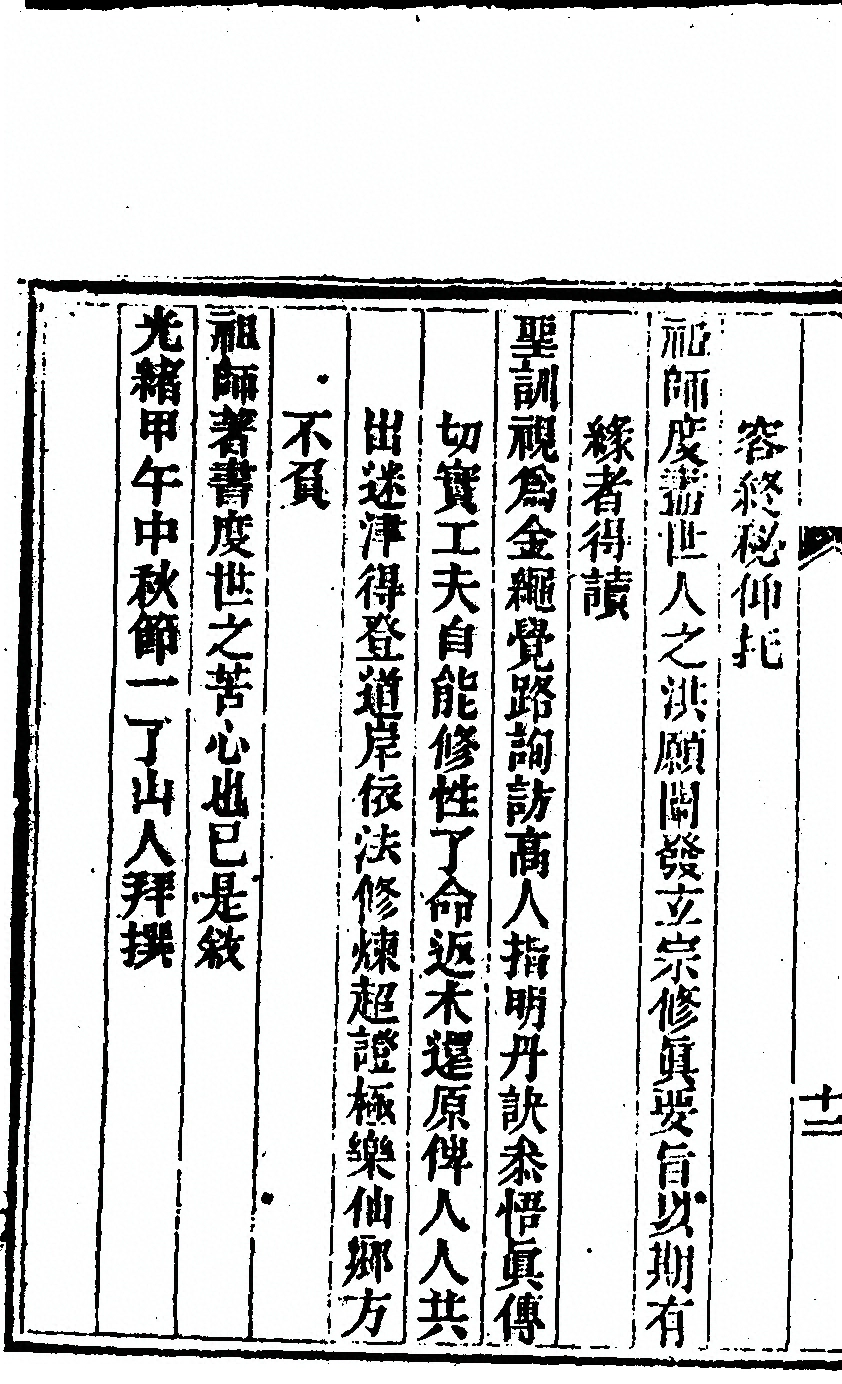 容終秘仰托
祖師度盡世人之洪願闡發立宗修眞要旨以期有
緣者得讀
聖訓視爲金繩覺路詢訪高人指明丹訣叅悟眞傳
切實工夫自能修性了命返本還原俾人人共
出迷津得登道岸依法修煉超證極樂仙鄉方
不負
祖師著書度世之苦心也已是敘
光緒甲午中秋節一了山人拜撰
十二